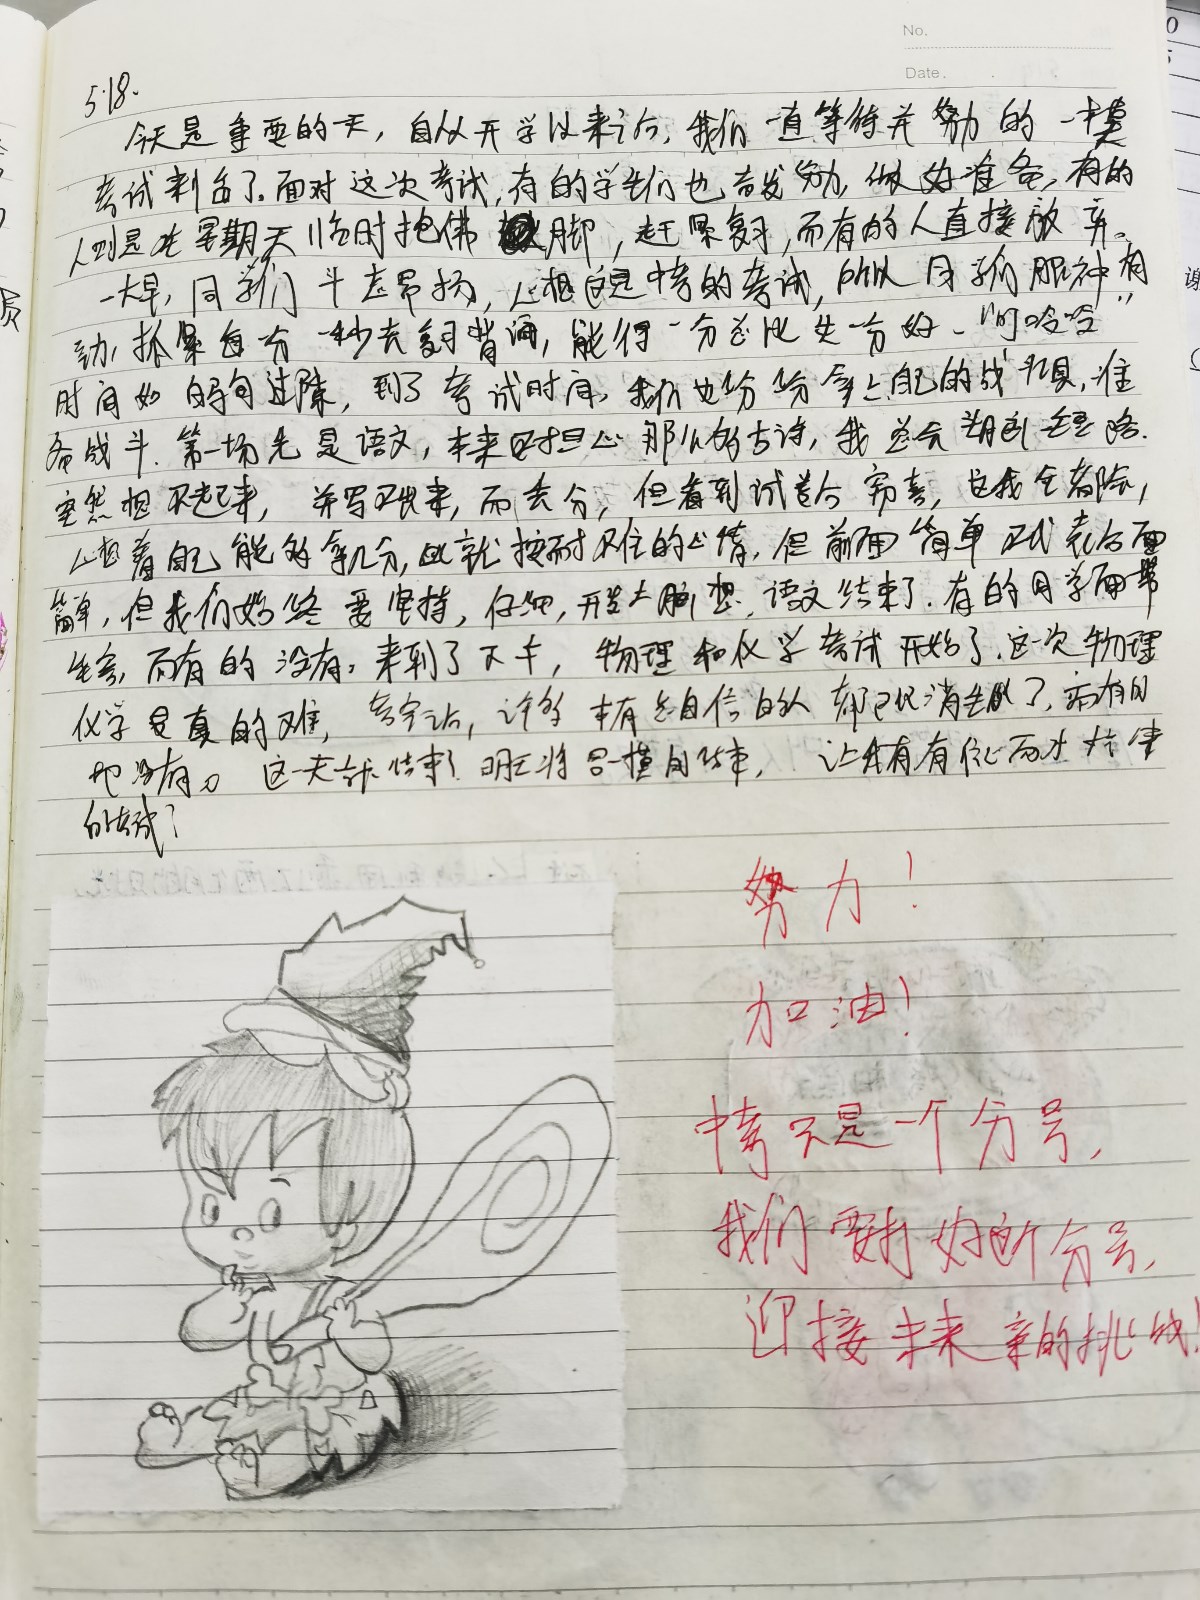 No.
Date.
5.18.
今天是重要的一天，自从开学以来之后，我们一直等待并努力的一模
考试来了。面对这次考试，有的学生们也奋发努力，做好准备，有的
人则是在星期天临时抱佛脚，赶紧复习，而有的人直接放弃。
一大早，同学们斗志昂扬，心想这是中考的考试，所以同学们眼神有
力，抓紧每分一秒去复习背诵，能得一分总比失一分好。“哈哈”
时间如白驹过隙，到了考试时间，我们也纷纷拿上自己的战具，准
备战斗。第一场先是语文，本来时担心那么的古诗，我总会
突然想不起来，并写不出来，而丢分，但看到试卷后窃喜，这我全都会，
心想着自己能够拿几分，此就按耐不住的心情，但前面简单不代表后面
简单，但我们始终要坚持，仔细，开大脑想，语文结束了。有的同学面带
，而有的没有。来到了下午，物理和化学考试开始了，这次物理
化学是真的难，考完之后，许多本有点自信的人都已经消失了，而有的
也没有。这一天就结束了。明天将是一模的结束，让我有有信心面
的考试！
努力！
加油！
中考只是一个分号，
我们要打好这个分号，
迎接未来新的挑战！
谢